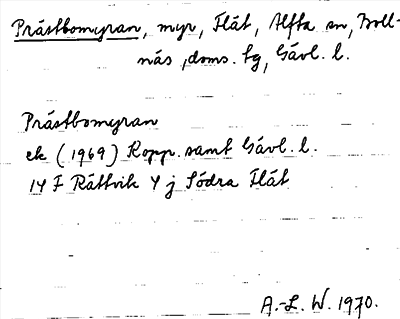 Prästbomyran, myr, Flät, Alfta sn, Boll-
näs doms. tg, Gävl. l.
Prästbomyran
ek (1969) Kopp. samt Gävl. l.
14 F Rättvik 4 j Södra Flät
A.-L. W. 1970.